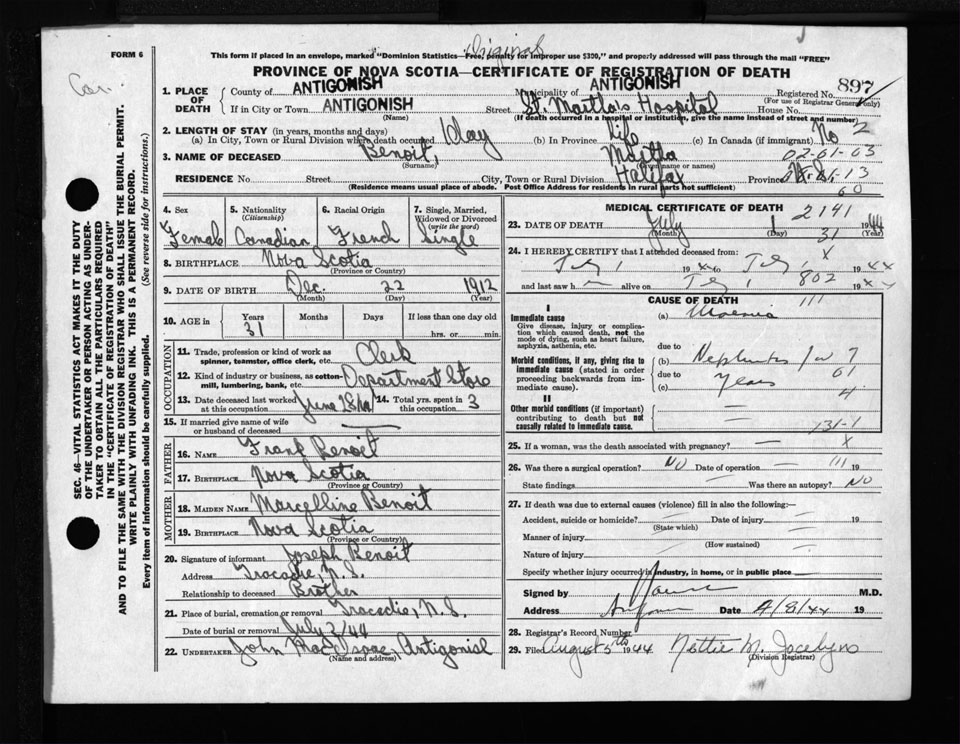 FORM 6
This form if placed in an envelope, marked "Dominion Statistics—Free, penalty for improper use $300," and properly addressed will pass through the mail "FREE"
Original
PROVINCE OF NOVA SCOTIA—CERTIFICATE OF REGISTRATION OF DEATH
1. PLACE OF DEATH
County of ANTIGONISH
Municipality of ANTIGONISH
Registered No. 897
(For use of Registrar General only)
If in City or Town ANTIGONISH
(Name)
Street St. Martha's Hospital House No.
(If death occurred in a hospital or institution, give the name instead of street and number)
2. LENGTH OF STAY (in years, months and days)
(a) In City, Town or Rural Division where death occurred 1 day (b) In Province Life (c) In Canada (if immigrant) No 2
02-01-03
3. NAME OF DECEASED Benoit, Martha
(Surname) (Given name or names)
RESIDENCE No. Street City, Town or Rural Division Halifax Province N.S.
-13
60
(Residence means usual place of abode. Post Office Address for residents in rural parts not sufficient)
4. Sex Female
5. Nationality (Citizenship) Canadian
6. Racial Origin French
7. Single, Married, Widowed or Divorced (write the word) Single
8. BIRTHPLACE Nova Scotia
(Province or Country)
9. DATE OF BIRTH Dec. 22 1912
(Month) (Day) (Year)
10. AGE in Years 31 Months Days If less than one day old
hrs. or min.
OCCUPATION
11. Trade, profession or kind of work as spinner, teamster, office clerk, etc. Clerk
12. Kind of industry or business, as cotton-mill, lumbering, bank, etc. Department Store
13. Date deceased last worked at this occupation June
14. Total yrs. spent in this occupation 3
15. If married give name of wife or husband of deceased —
FATHER
16. NAME Frank Benoit
17. BIRTHPLACE Nova Scotia
(Province or Country)
MOTHER
18. MAIDEN NAME Marcelline Benoit
19. BIRTHPLACE Nova Scotia
(Province or Country)
20. Signature of informant Joseph Benoit
Address Tracadie, N.S.
Relationship to deceased Brother
21. Place of burial, cremation or removal Tracadie, N.S.
Date of burial or removal July 3/44
22. UNDERTAKER John MacIsaac, Antigonish
(Name and address)
MEDICAL CERTIFICATE OF DEATH
2141
23. DATE OF DEATH July 1 1944
(Month) (Day) (Year)
31
24. I HEREBY CERTIFY that I attended deceased from: X
July 1 1944 to July 1 1944
and last saw h alive on July 1 802 1944
CAUSE OF DEATH
111
I
Immediate cause
Give disease, injury or complication which caused death, not the mode of dying, such as heart failure, asphyxia, asthenia, etc.
(a) Uraemia
due to
Morbid conditions, if any, giving rise to immediate cause (stated in order proceeding backwards from immediate cause).
(b) Nephritis for 7
due to years 61
(c) 4
II
Other morbid conditions (if important) contributing to death but not causally related to immediate cause.
131-1
25. If a woman, was the death associated with pregnancy? — X
26. Was there a surgical operation? No Date of operation — 111 19
State findings Was there an autopsy? No
27. If death was due to external causes (violence) fill in also the following:—
Accident, suicide or homicide? Date of injury 19
(State which)
Manner of injury
(How sustained)
Nature of injury
Specify whether injury occurred in industry, in home, or in public place —
Signed by M.D.
Address Date 4/8/44 19
28. Registrar's Record Number
29. Filed August 5th 1944 Nettie M. Jocelyn
(Division Registrar)
SEC. 46—VITAL STATISTICS ACT MAKES IT THE DUTY
OF THE UNDERTAKER OR PERSON ACTING AS UNDERTAKER TO OBTAIN ALL THE PARTICULARS REQUIRED
IN THE "CERTIFICATE OF REGISTRATION OF DEATH"
AND TO FILE THE SAME WITH THE DIVISION REGISTRAR WHO SHALL ISSUE THE BURIAL PERMIT.
WRITE PLAINLY WITH UNFADING INK. THIS IS A PERMANENT RECORD.
Every item of information should be carefully supplied. (See reverse side for instructions.)